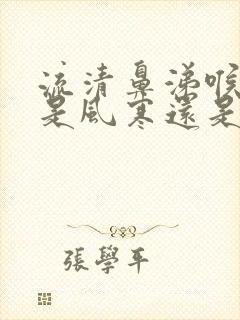 流清鼻涕喉
是風寒還是
張學平